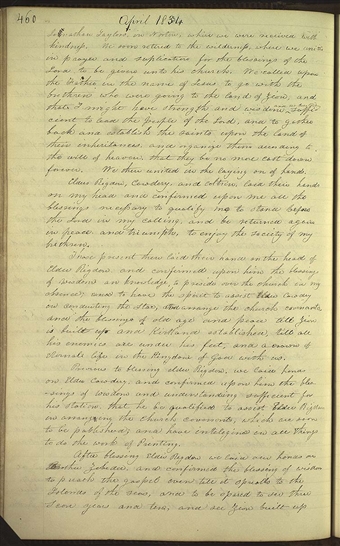 460 April 1834
to Jonathan Taylor's, in Norton, where we were received with
kindness. We soon retired to the wilderness, where we united
in prayer and supplication for the blessings of the
Lord to be given unto his church. We called upon
the Father in the name of Jesus to go with the
brethren who were going to the land of Zion, and
that I might have strength and wisdom suffi-
cient to lead the people of the Lord, and to gather
back and establish the saints upon the land of
their inheritances, and organize them according to
the will of heaven, that they be no more cast down
forever. We then united in the laying on of hands.
Elders Rigdon, Cowdery, and laid their hands
on my head and confirmed upon me all the
blessings necessary to qualify me to stand before
the Lord in my calling, and be returned again
in peace and triumph, to enjoy the society of my
brethren.
Those present then laid their hands on the head of
Elder Rigdon, and confirmed upon him the blessings
of wisdom and knowledge, to preside over the church in my
absence, and to have the spirit to assist Elder Cowdery
in conducting the Star, arrange the church covenants
and the blessings of old age and peace till Zion
is built up and Kirtland established, till all
his enemies are under his feet, and a crown of
eternal life in the Kingdom of God with us.
Previous to blessing elder Rigdon, we laid hands
on Elder Cowdery, and confirmed upon him the bles-
sings of wisdom and understanding sufficient for
his station, that he be qualified to assist Elder Rigdon
in arranging the church covenants, which are soon
to be published; and have intelligence in all things
to do the work of Printing.
After blessing Elder Rigdon we laid our hands on
brother Zebedee and confirmed the blessing of wisdom
to preach the gospel even till it spreads to the
Islands of the seas, and to be spared to see three
score years and ten, and see Zion built up